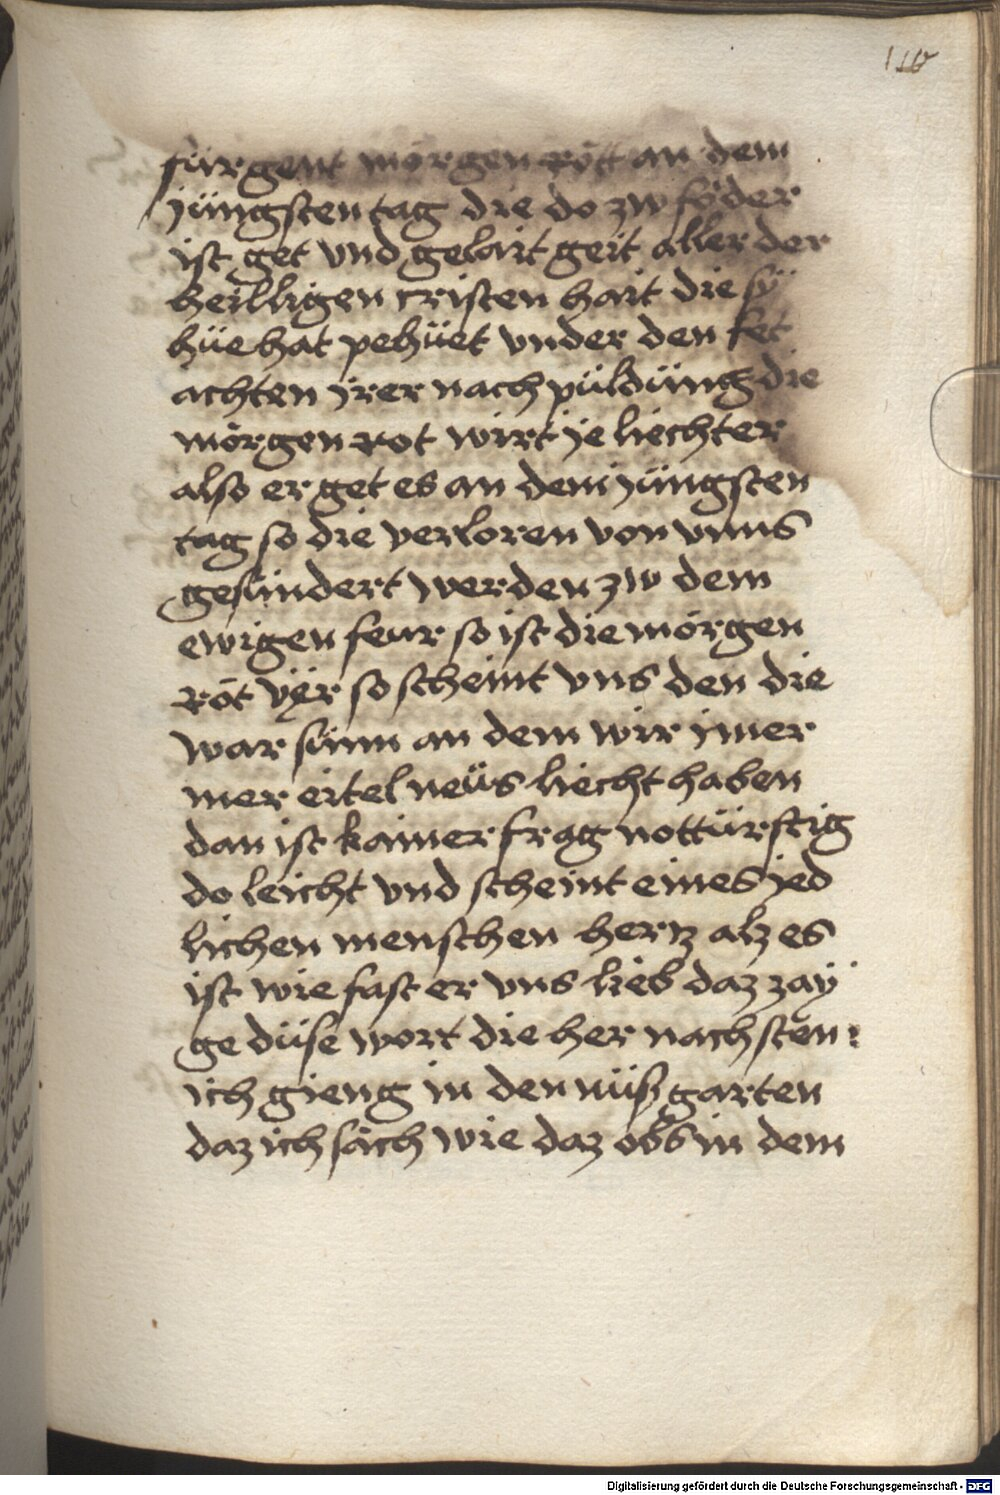 116
fürgent morgen rött an dem
jüngsten tag die do zw föder
ist get vnd gelait geit aller der
heilligen cristen hait die sÿ
hüe hat pehüet vnder den fet
achten jrer nach püldüng die
mörgen rot wirt je liechter
also er get es an dem jüngsten
tag so die verloren von vnns
gesündert werden zw dem
ewigen feur so ist die mörgen
röt vÿr so scheint vns den die
war sünn an dem wir jmer
mer eitel neüs liecht haben
dan ist kainer frag nottürftig
do leicht vnd scheint eines jed
lichen menschen hertz alz es
ist wie fast er vns lieb daz zaÿ
ge düse wort die her nach sten :
ich gieng in den nüßgarten
daz ich säch wie daz obs in dem
Digitalisierung gefördert durch die Deutsche Forschungsgemeinschaft - DFG